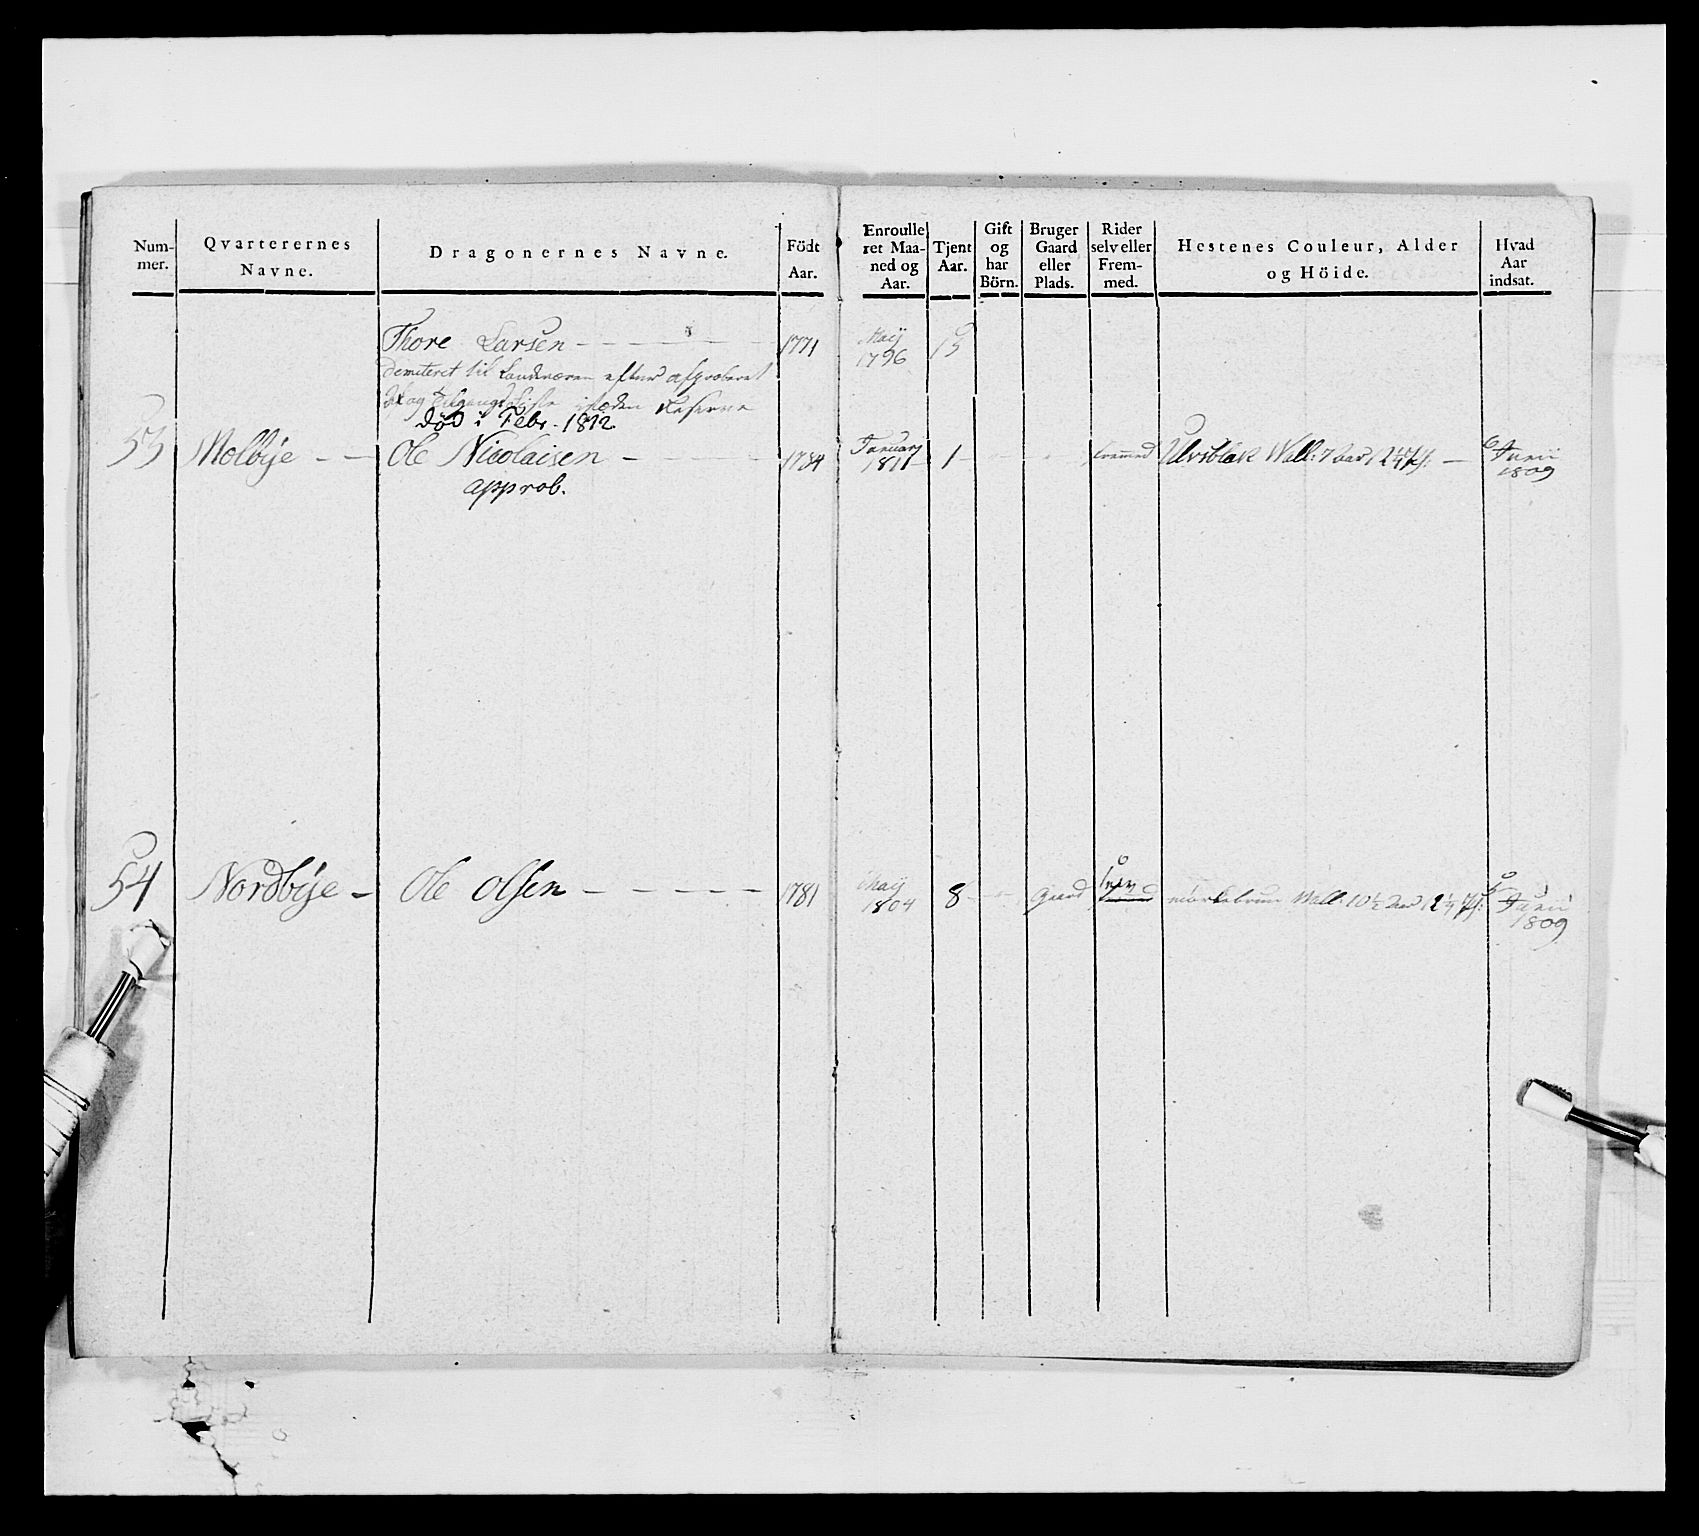 Num-
mer.
Qvarterernes
Navne.
Dragonernes Navne.
Födt
Aar.
Enroulle
ret Maa-
ned og
Aar.
Tjent
Aar.
Gift
og
har
Börn.
Bruger
Gaard
eller
Plads.
Rider
selv eller
Frem-
med.
Hestenes Couleur, Alder
og Höide.
Hvad
Aar
indsat.
Thore Larsen - - - - - - 1771 Maÿ
1796 15
Demiteret til Landeværen efter approberet
af og Tilgangs Liste
død i Febr. 1812
53 Molbÿe - - Ole Nicolaisen - - - - - 1784 Januarÿ
1811 - 1 - - - fremmed Ulvsblak Wall: 7 Aar 12 1/4 - Junii
1809
approb.
54 Nordbÿe - Ole Olsen - - - - - 1781 Maÿ
1804 8 - - Gaard mörkebrun Wall: 10 1/2 Aar 12 1/4 Junii
1809